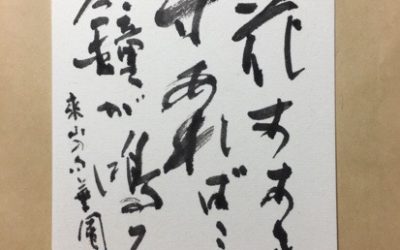 花すすき
寺あれ
ばこ
鐘が鳴る
来山の句